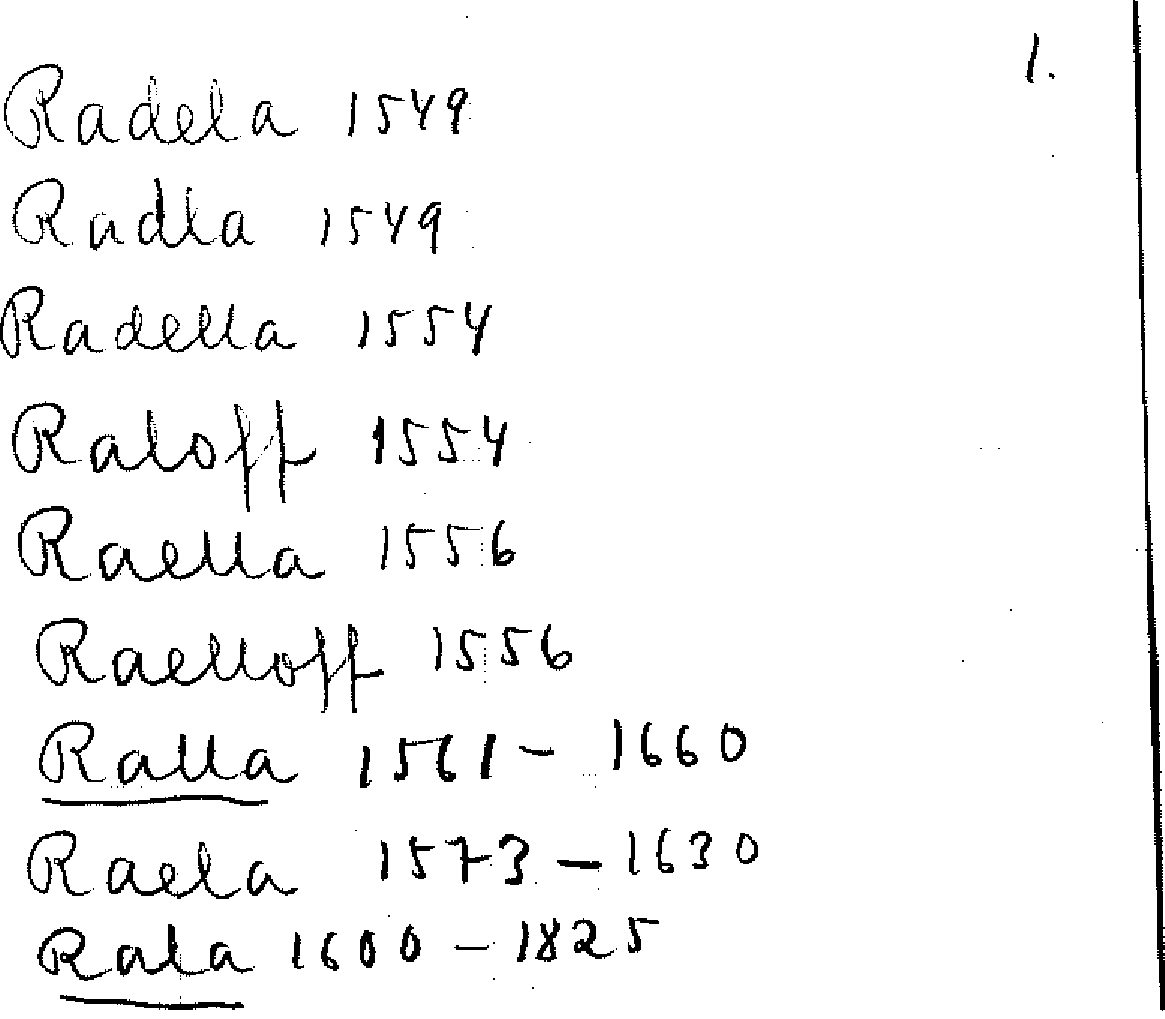 1.
Radela 1549
Radla 1549
Radella 1554
Raloff 1554
Raella 1556
Raelloff 1556
Ralla 1561 - 1660
Raela 1573 - 1630
Rala 1600 - 1825